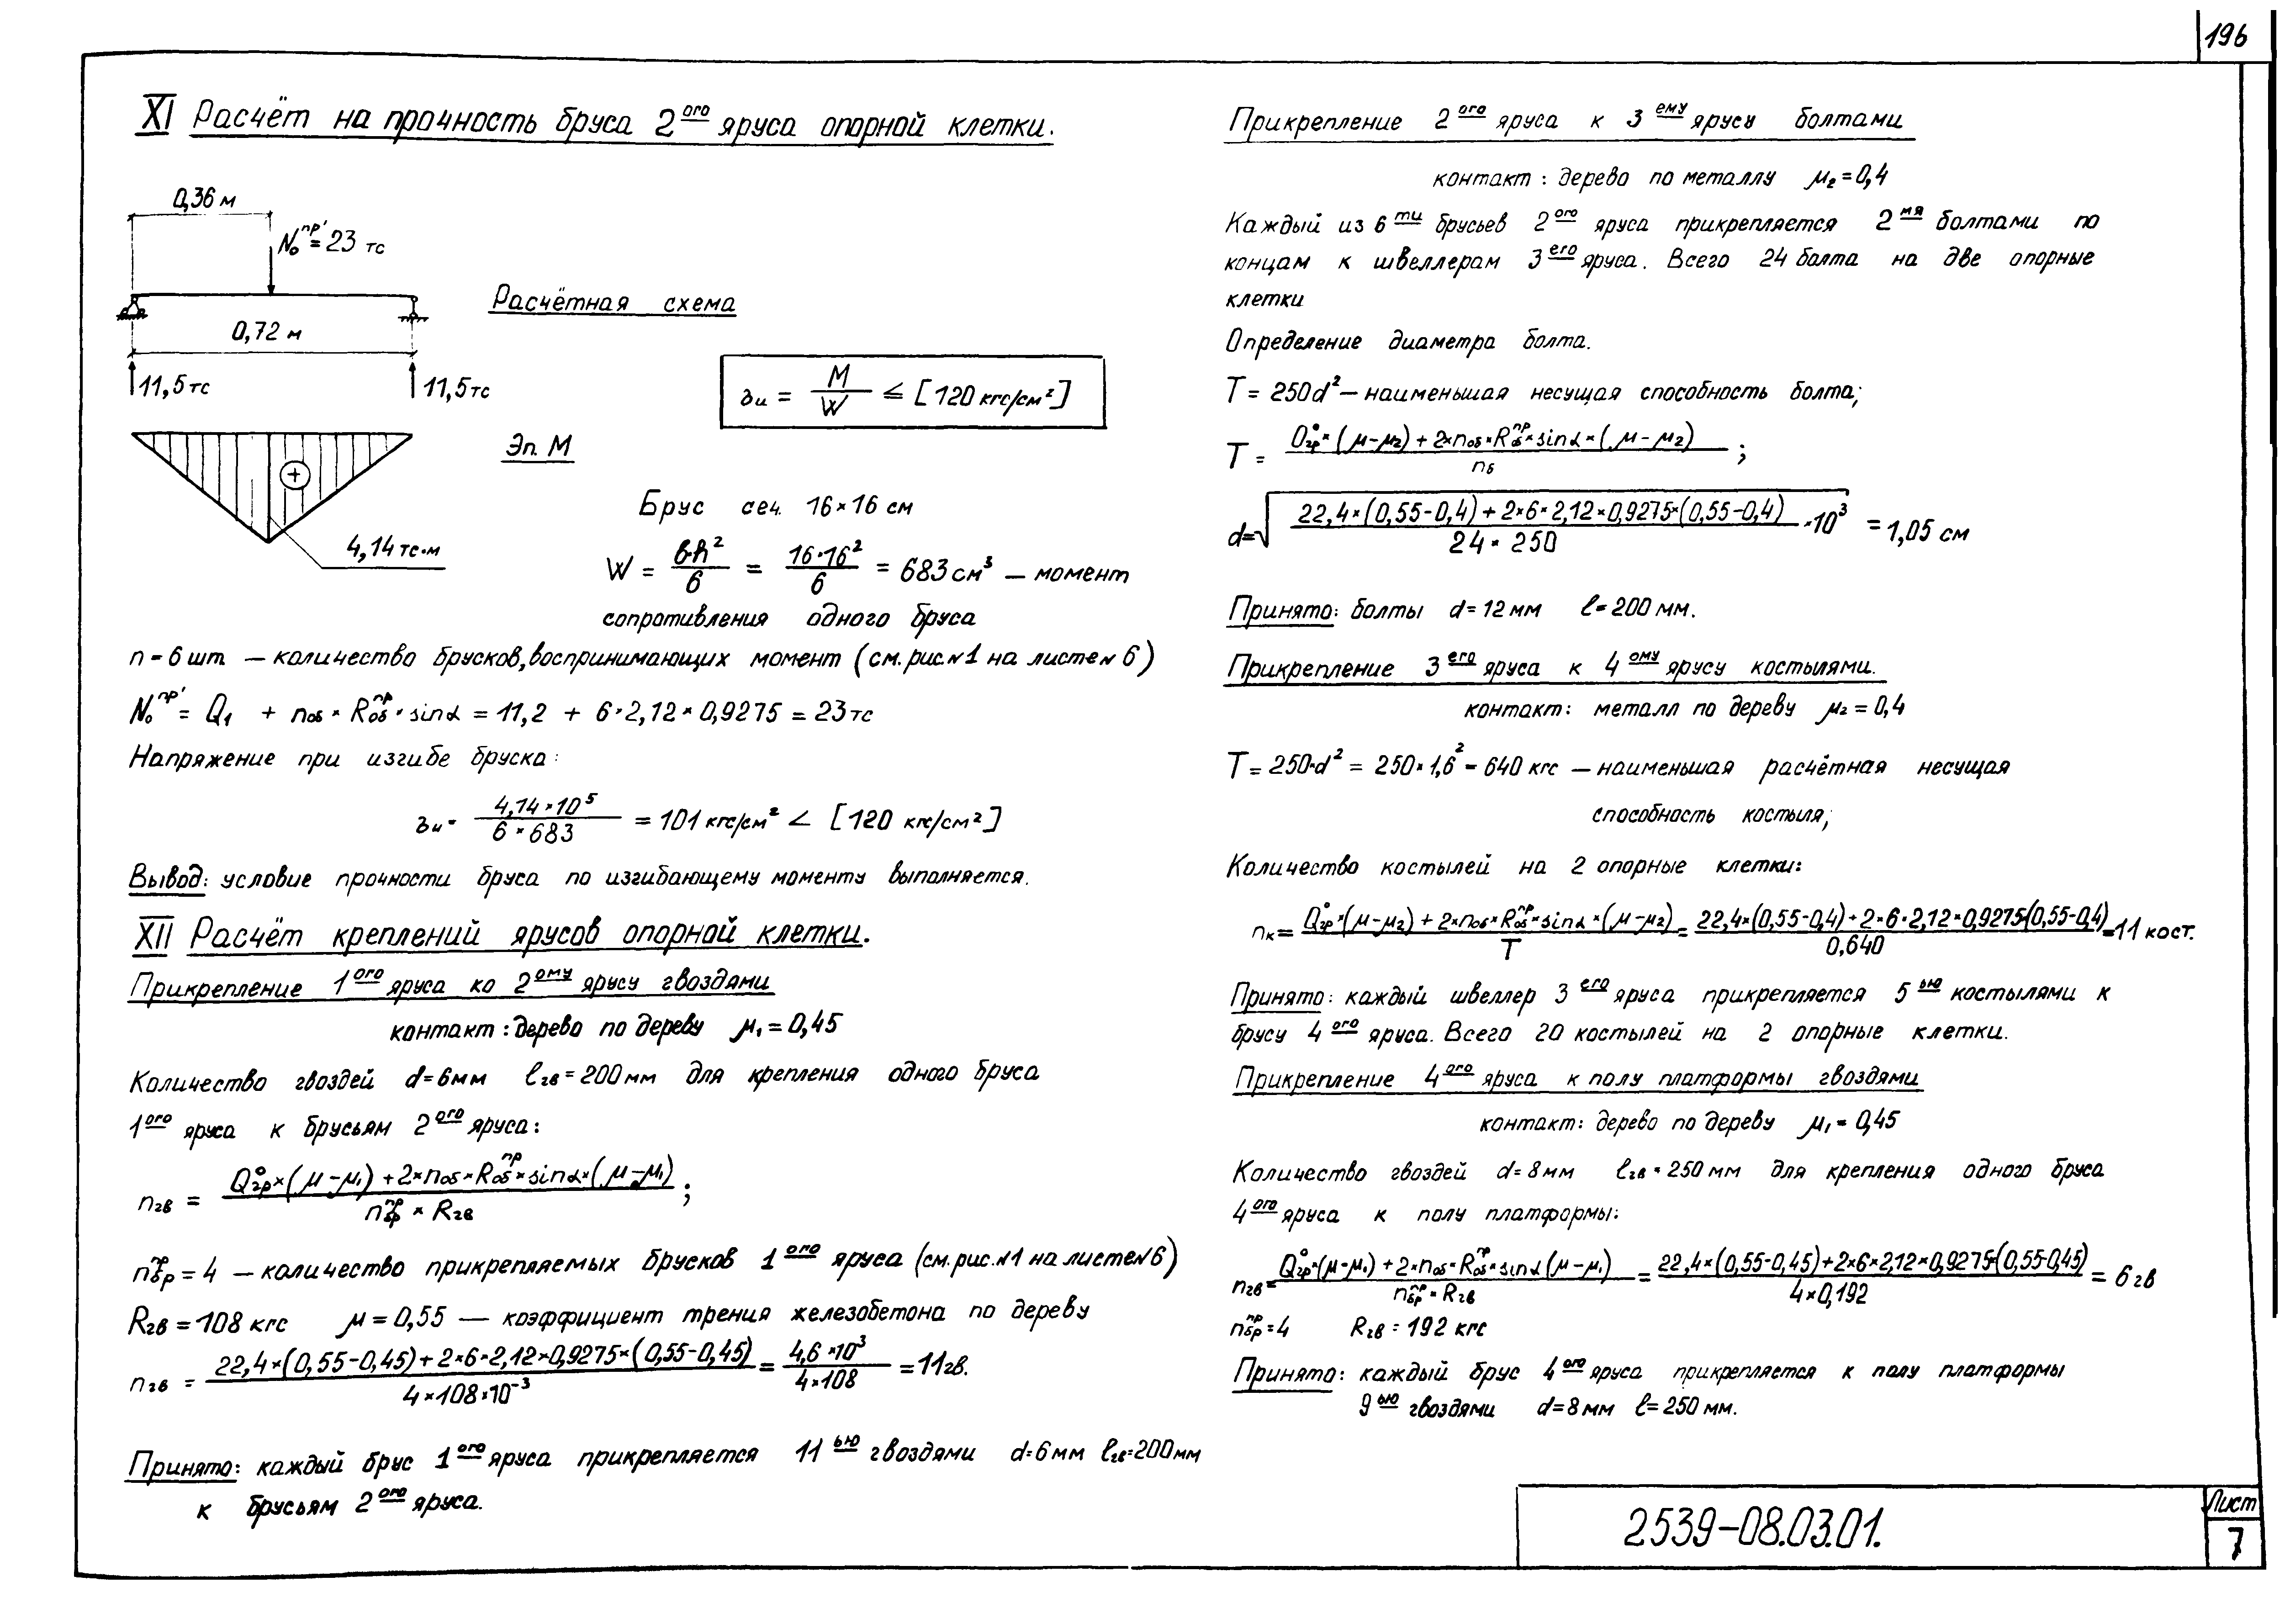 196
XI Расчёт на прочность бруса 2ого яруса опорной клетки.
0,36 м
N₀ᵖʳ' = 23 тс
Расчётная схема
0,72 м
11,5 тс 11,5 тс
σи = M/W ≤ [120 кгс/см²]
Эп. М
Брус сеч. 16×16 см
4,14 тс·м
W = bh²/6 = 16·16²/6 = 683 см³ — момент
сопротивления одного бруса
n = 6 шт — количество брусков, воспринимающих момент (см. рис. №1 на листе № 6)
N₀ᵖʳ' = Q₁ + nоб × Rобᵖʳ · sinα = 11,2 + 6·2,12×0,9275 = 23 тс
Напряжение при изгибе бруска:
σи = 4,14×10⁵/(6×683) = 101 кгс/см² < [120 кгс/см²]
Вывод: условие прочности бруса по изгибающему моменту выполняется.
XII Расчёт креплений ярусов опорной клетки.
Прикрепление 1ого яруса ко 2ому ярусу гвоздями
контакт: дерево по дереву μ₁ = 0,45
Количество гвоздей d=6мм ℓгв=200мм для крепления одного бруса
1ого яруса к брусьям 2ого яруса:
nгв = (Q°гр×(μ−μ₁) + 2×nоб×Rобᵖʳ×sinα×(μ−μ₁))/(nбрᵖʳ × Rгв) ;
nбрᵖʳ = 4 — количество прикрепляемых брусков 1ого яруса (см. рис. №1 на листе №6)
Rгв = 108 кгс μ = 0,55 — коэффициент трения железобетона по дереву
nгв = (22,4×(0,55−0,45)+2×6×2,12×0,9275×(0,55−0,45))/(4×108×10⁻³) = 4,6×10³/(4×108) = 11гв.
Принято: каждый брус 1ого яруса прикрепляется 11ью гвоздями d=6мм ℓгв=200мм
к брусьям 2ого яруса.
Прикрепление 2ого яруса к 3ему ярусу болтами
контакт: дерево по металлу μ₂=0,4
Каждый из 6ти брусьев 2ого яруса прикрепляется 2мя болтами по
концам к швеллерам 3его яруса. Всего 24 болта на две опорные
клетки
Определение диаметра болта.
T = 250d² — наименьшая несущая способность болта;
T = (Q°гр×(μ−μ₂) + 2×nоб×Rобᵖʳ×sinα×(μ−μ₂))/nб ;
d=√((22,4×(0,55−0,4) + 2×6×2,12×0,9275×(0,55−0,4))/(24×250) ×10³) = 1,05 см
Принято: болты d=12мм ℓ=200мм.
Прикрепление 3его яруса к 4ому ярусу костылями.
контакт: металл по дереву μ₂ = 0,4
T = 250·d² = 250×1,6² = 640 кгс — наименьшая расчётная несущая
способность костыля;
Количество костылей на 2 опорные клетки:
nк = (Q°гр×(μ−μ₂) + 2×nоб×Rобᵖʳ×sinα×(μ−μ₂))/T = (22,4×(0,55−0,4)+2×6·2,12×0,9275×(0,55−0,4))/0,640 = 11 кост.
Принято: каждый швеллер 3его яруса прикрепляется 5ью костылями к
брусу 4ого яруса. Всего 20 костылей на 2 опорные клетки.
Прикрепление 4ого яруса к полу платформы гвоздями
контакт: дерево по дереву μ₁ = 0,45
Количество гвоздей d=8мм ℓгв=250мм для крепления одного бруса
4ого яруса к полу платформы:
nгв = (Q°гр×(μ−μ₁) + 2×nоб×Rобᵖʳ×sinα(μ−μ₁))/(nбрᵖʳ×Rгв) = (22,4×(0,55−0,45)+2×6×2,12×0,9275×(0,55−0,45))/(4×0,192) = 6гв
nбрᵖʳ = 4 Rгв = 192 кгс
Принято: каждый брус 4ого яруса прикрепляется к полу платформы
9ью гвоздями d=8мм ℓ=250мм.
2539-08.03.01.
Лист
7